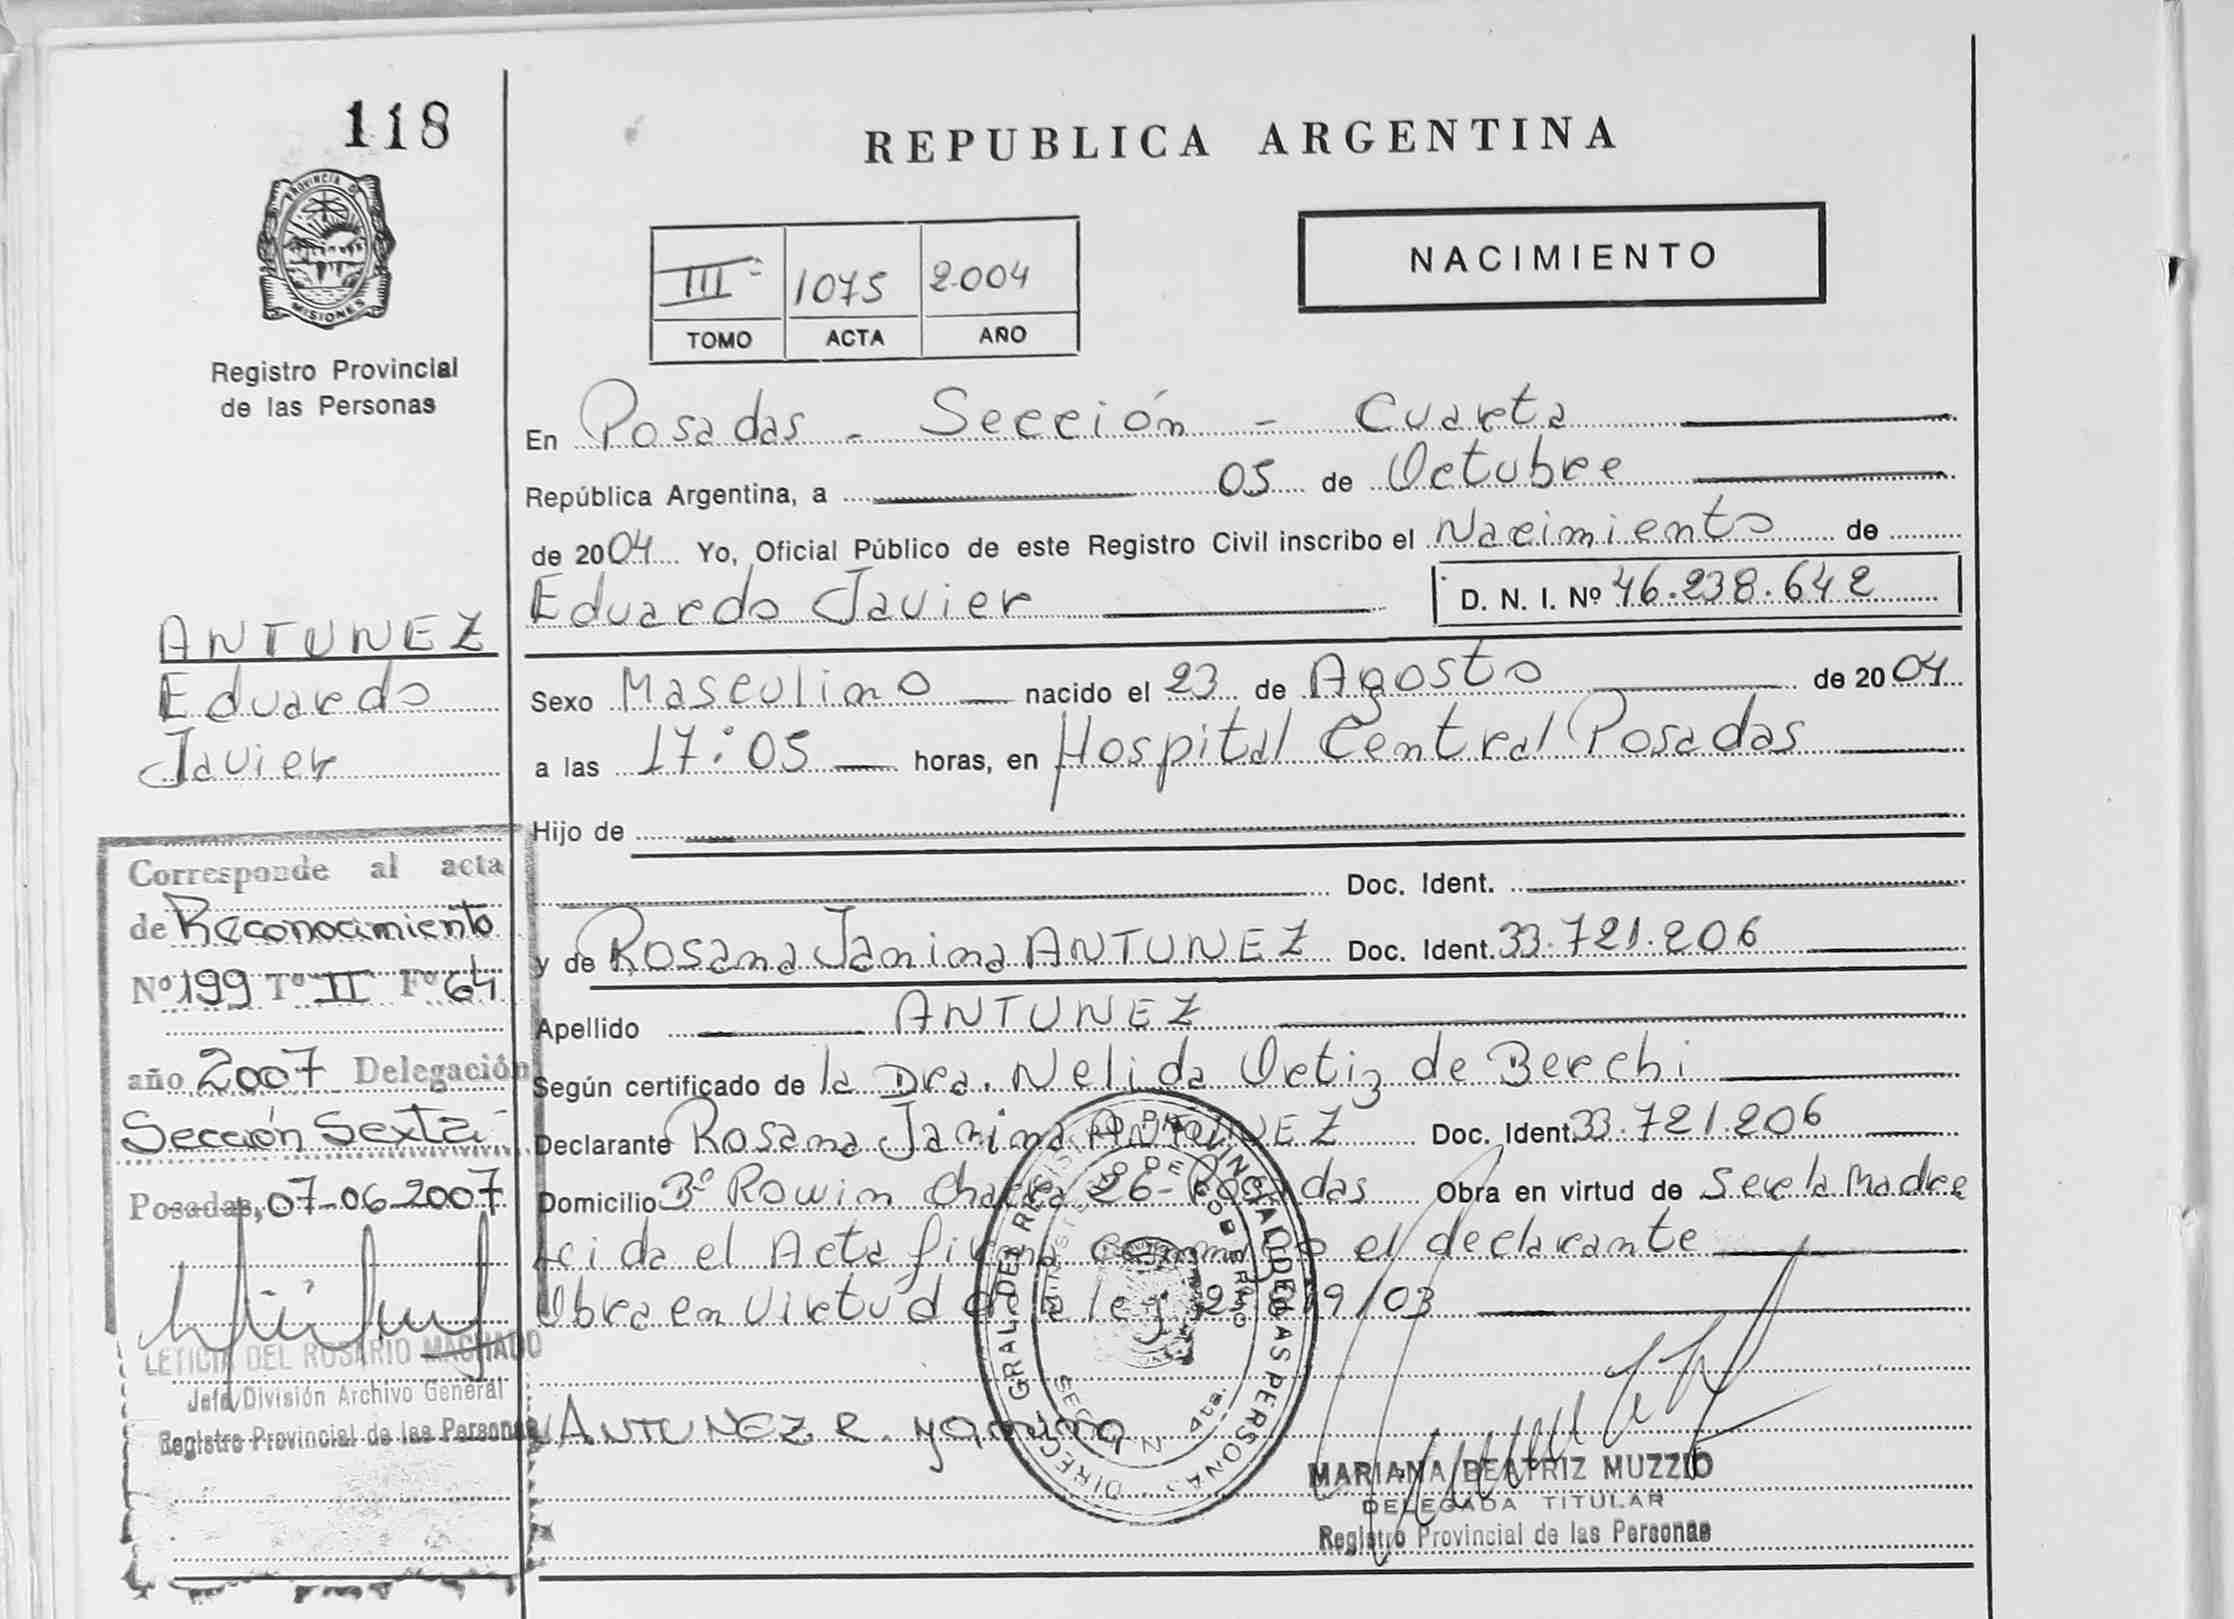 118
PROVINCIA DE
MISIONES
Registro Provincial
de las Personas
ANTUNEZ
Eduardo
Javier
Corresponde al acta
de Reconocimiento
Nº 199 Tº II Fº 64
año 2007 Delegación
Sección Sexta
Posadas, 07-06-2007
LETICIA DEL ROSARIO MACHADO
Jefa División Archivo General
Registro Provincial de las Personas
REPUBLICA ARGENTINA
NACIMIENTO
III 1075 2.004
TOMO ACTA AÑO
En Posadas - Sección - Cuarta
República Argentina, a 05 de Octubre
de 2004 Yo, Oficial Público de este Registro Civil inscribo el Nacimiento de
Eduardo Javier D. N. I. Nº 46.238.642
Sexo Masculino nacido el 23 de Agosto de 2004
a las 17:05 horas, en Hospital Central Posadas
Hijo de
Doc. Ident.
y de Rosana Janina ANTUNEZ Doc. Ident. 33.721.206
Apellido ANTUNEZ
Según certificado de la Dra. Nelida Ortiz de Berchi
Declarante Rosana Janina ANTUNEZ Doc. Ident. 33.721.206
Domicilio Bº Rowin Chacra 26- Posadas Obra en virtud de Ser la Madre
Leida el Acta firma conmigo el declarante
Obra en Virtud de la ley /03
ANTUNEZ R. yanina
DIREC. GRAL. DEL REGISTRO PROVINCIAL DE LAS PERSONAS
MINISTERIO DE GOBIERNO
MARIANA BEATRIZ MUZZIO
DELEGADA TITULAR
Registro Provincial de las Personas